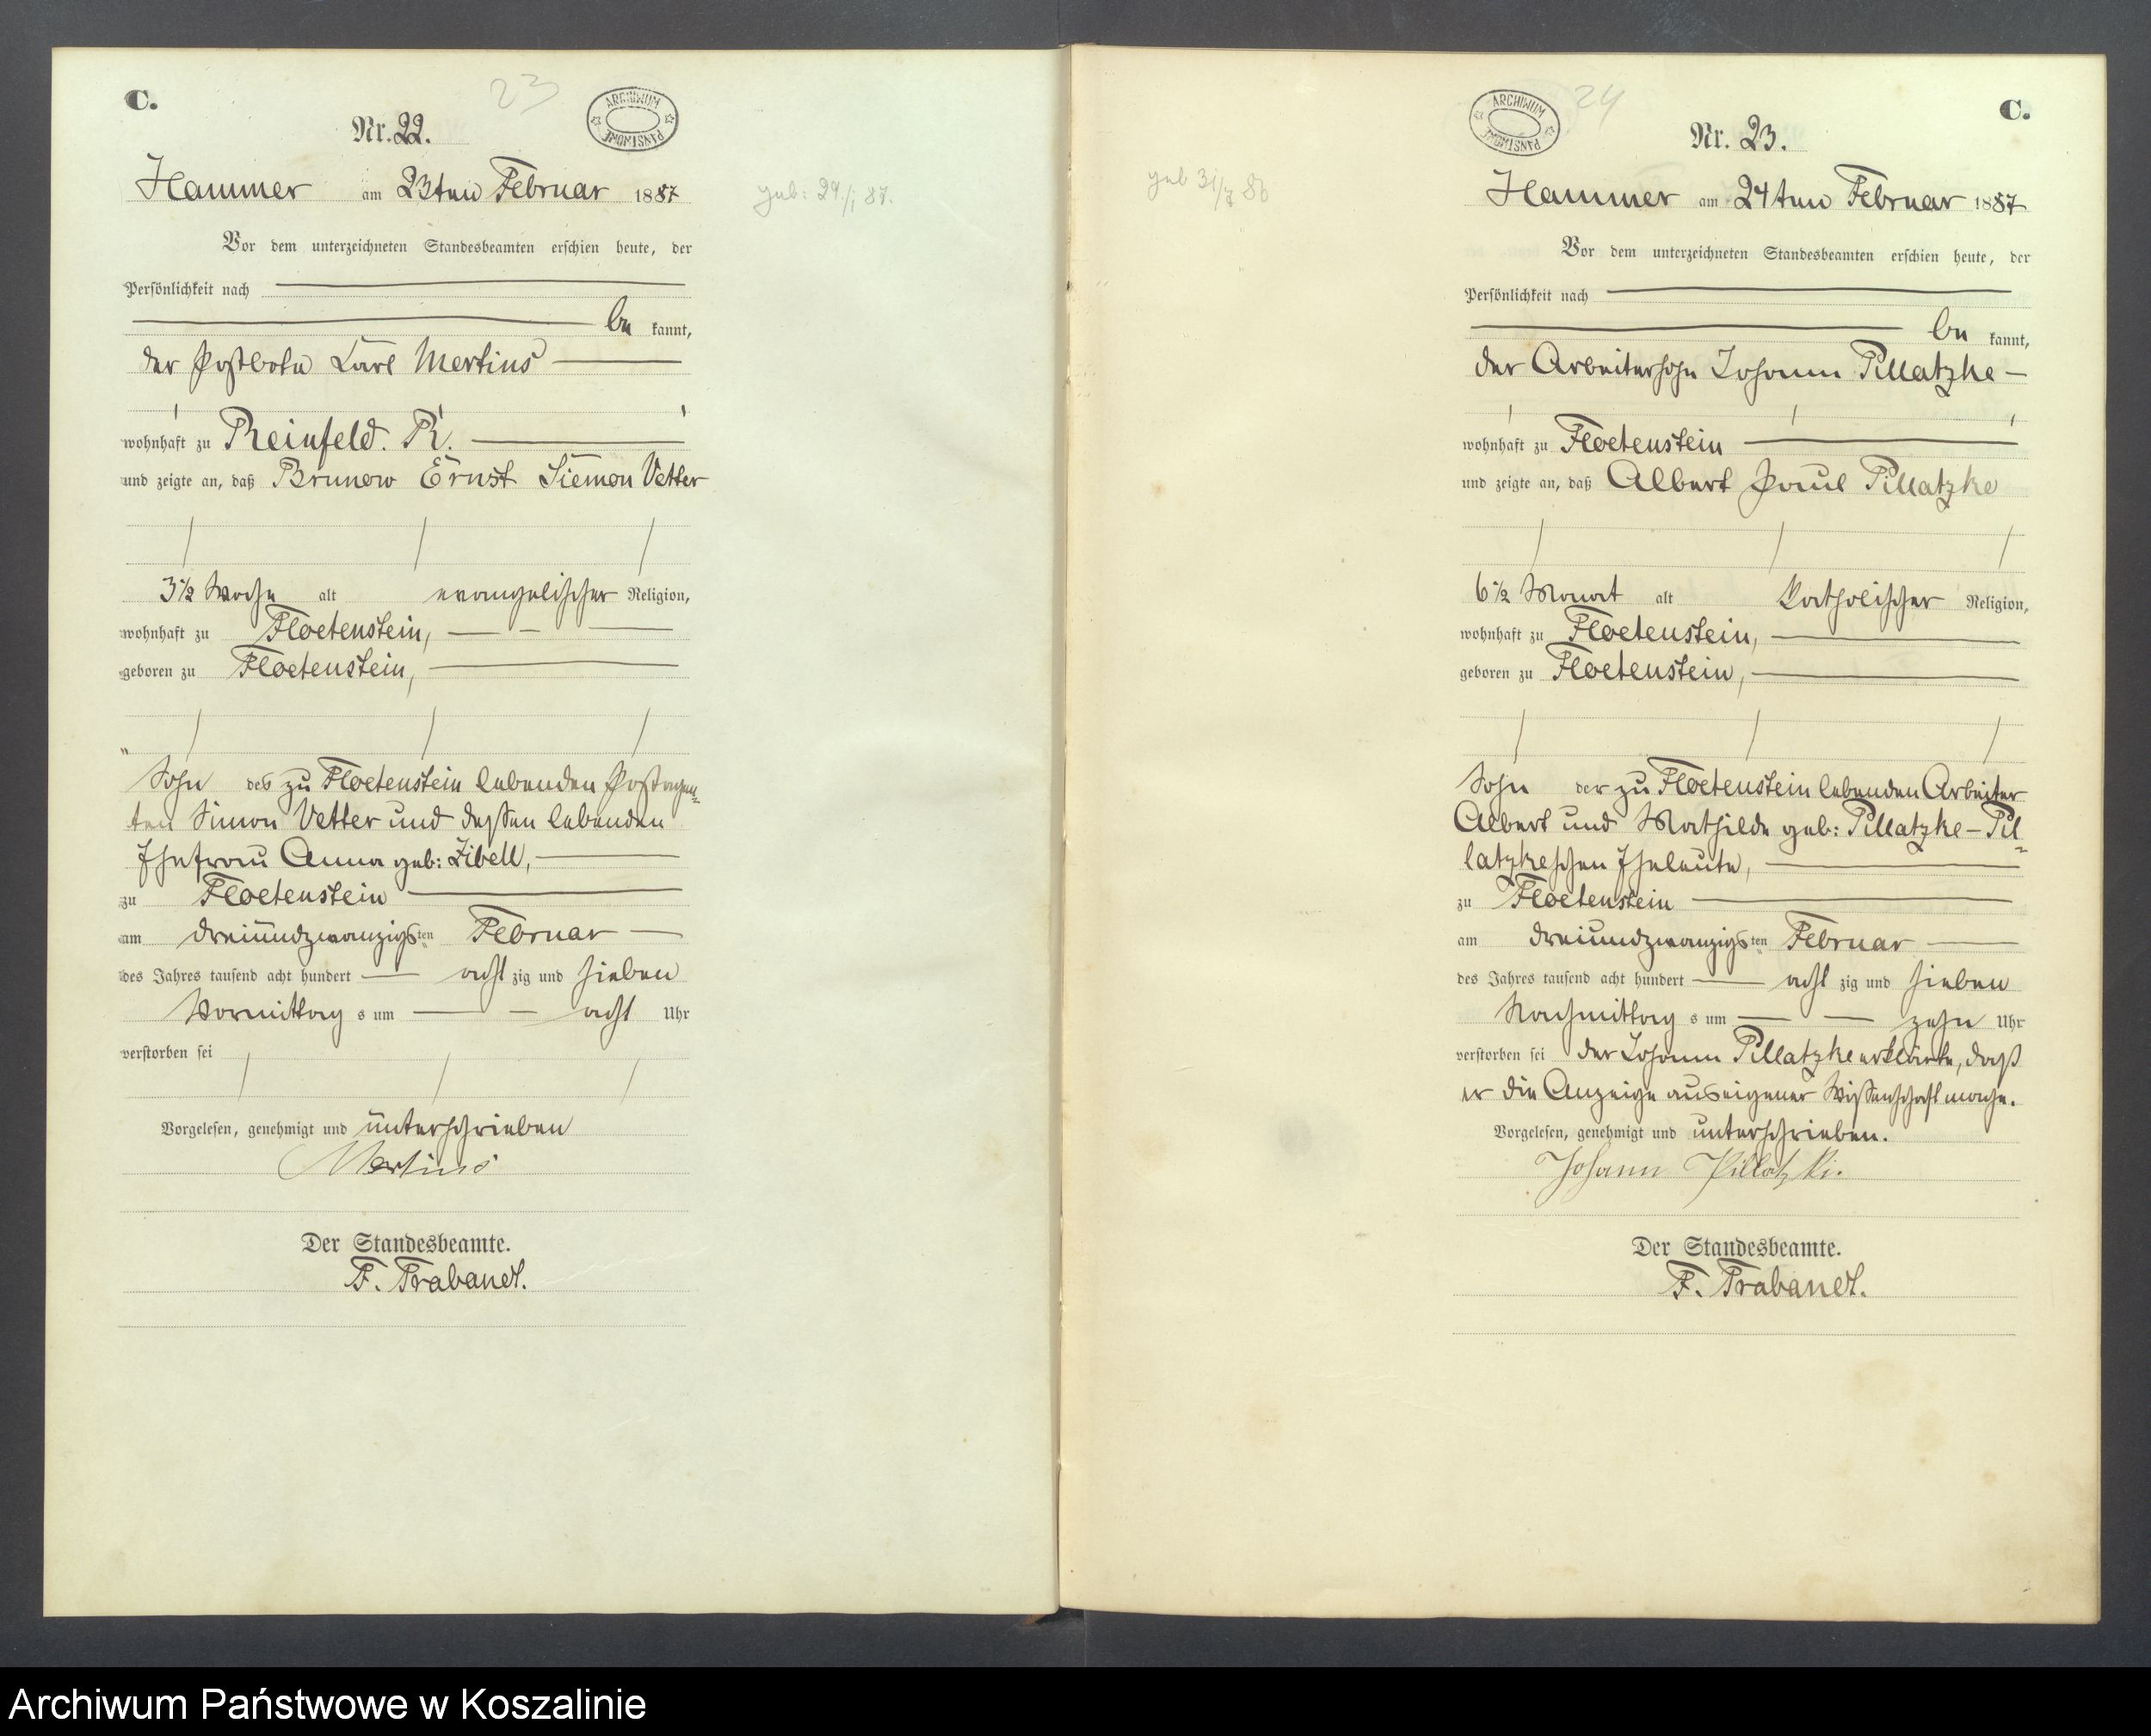 C.
23
ARCHIWUM PAŃSTWOWE
Nr. 22.
Hammer am 23ten Februar 1887
geb: 29./1 87.
Vor dem unterzeichneten Standesbeamten erschien heute, der
Persönlichkeit nach
be kannt,
der Postbote Carl Mertins
wohnhaft zu Reinfeld. R.
und zeigte an, daß Brunow Ernst Siemon Vetter
3 1/2 Woche alt evangelischer Religion,
wohnhaft zu Floetenstein,
geboren zu Floetenstein,
Sohn des zu Floetenstein lebenden Postagen-
ten Simon Vetter und dessen lebenden
Ehefrau Anna geb: Zibell,
zu Floetenstein
am dreiundzwanzigsten Februar
des Jahres tausend acht hundert acht zig und sieben
Vormittag s um acht Uhr
verstorben sei
Vorgelesen, genehmigt und unterschrieben
Mertins
Der Standesbeamte.
F. Trabandt.
C.
24
ARCHIWUM PAŃSTWOWE
Nr. 23.
Hammer am 24ten Februar 1887
geb 31/7 86
Vor dem unterzeichneten Standesbeamten erschien heute, der
Persönlichkeit nach
be kannt,
der Arbeitersohn Johann Pillatzke
wohnhaft zu Floetenstein
und zeigte an, daß Albert Paul Pillatzke
6 1/2 Monat alt katholischer Religion,
wohnhaft zu Floetenstein,
geboren zu Floetenstein,
Sohn der zu Floetenstein lebenden Arbeiter
Albert und Mathilde geb: Pillatzke-Pil-
latzkeschen Eheleute,
zu Floetenstein
am dreiundzwanzigsten Februar
des Jahres tausend acht hundert acht zig und sieben
Nachmittag s um zehn Uhr
verstorben sei der Johann Pillatzke erklärte, daß
er die Anzeige aus eigener Wissenschaft mache.
Vorgelesen, genehmigt und unterschrieben.
Johann Pillatzki.
Der Standesbeamte.
F. Trabandt.
Archiwum Państwowe w Koszalinie